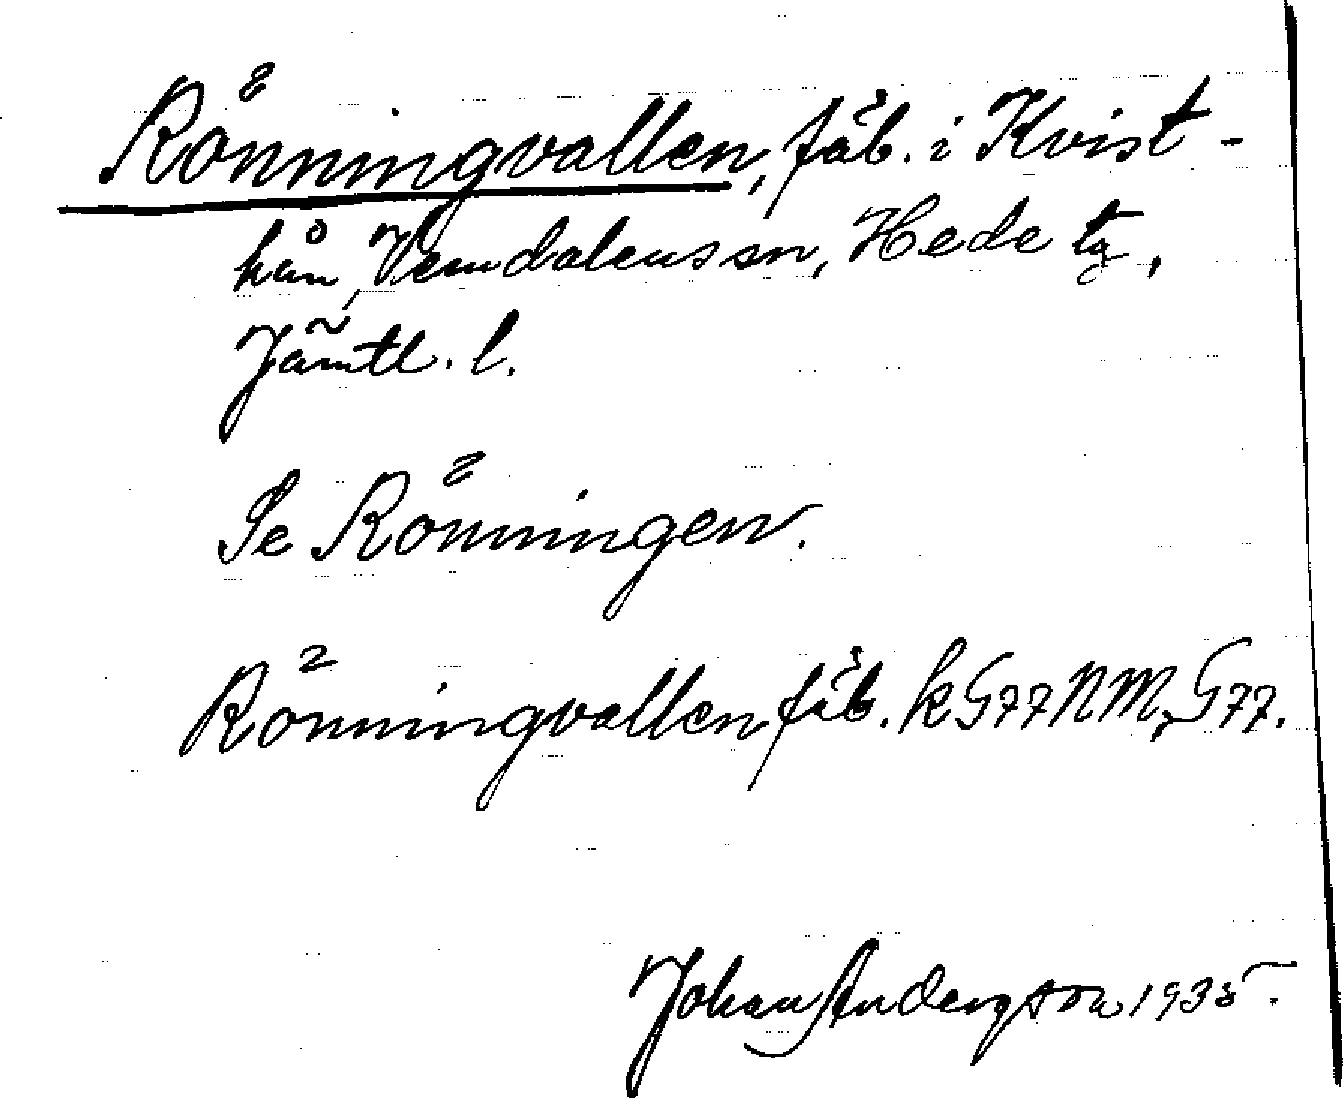 Rönningvallen, fäb. i Kvist-
hån, Vemdalens sn, Hede tg,
Jämtl. l.
Se Rönningen.
Rönningvallen, fäb. k G77 NM, G77.
Johan Anderson 1935.